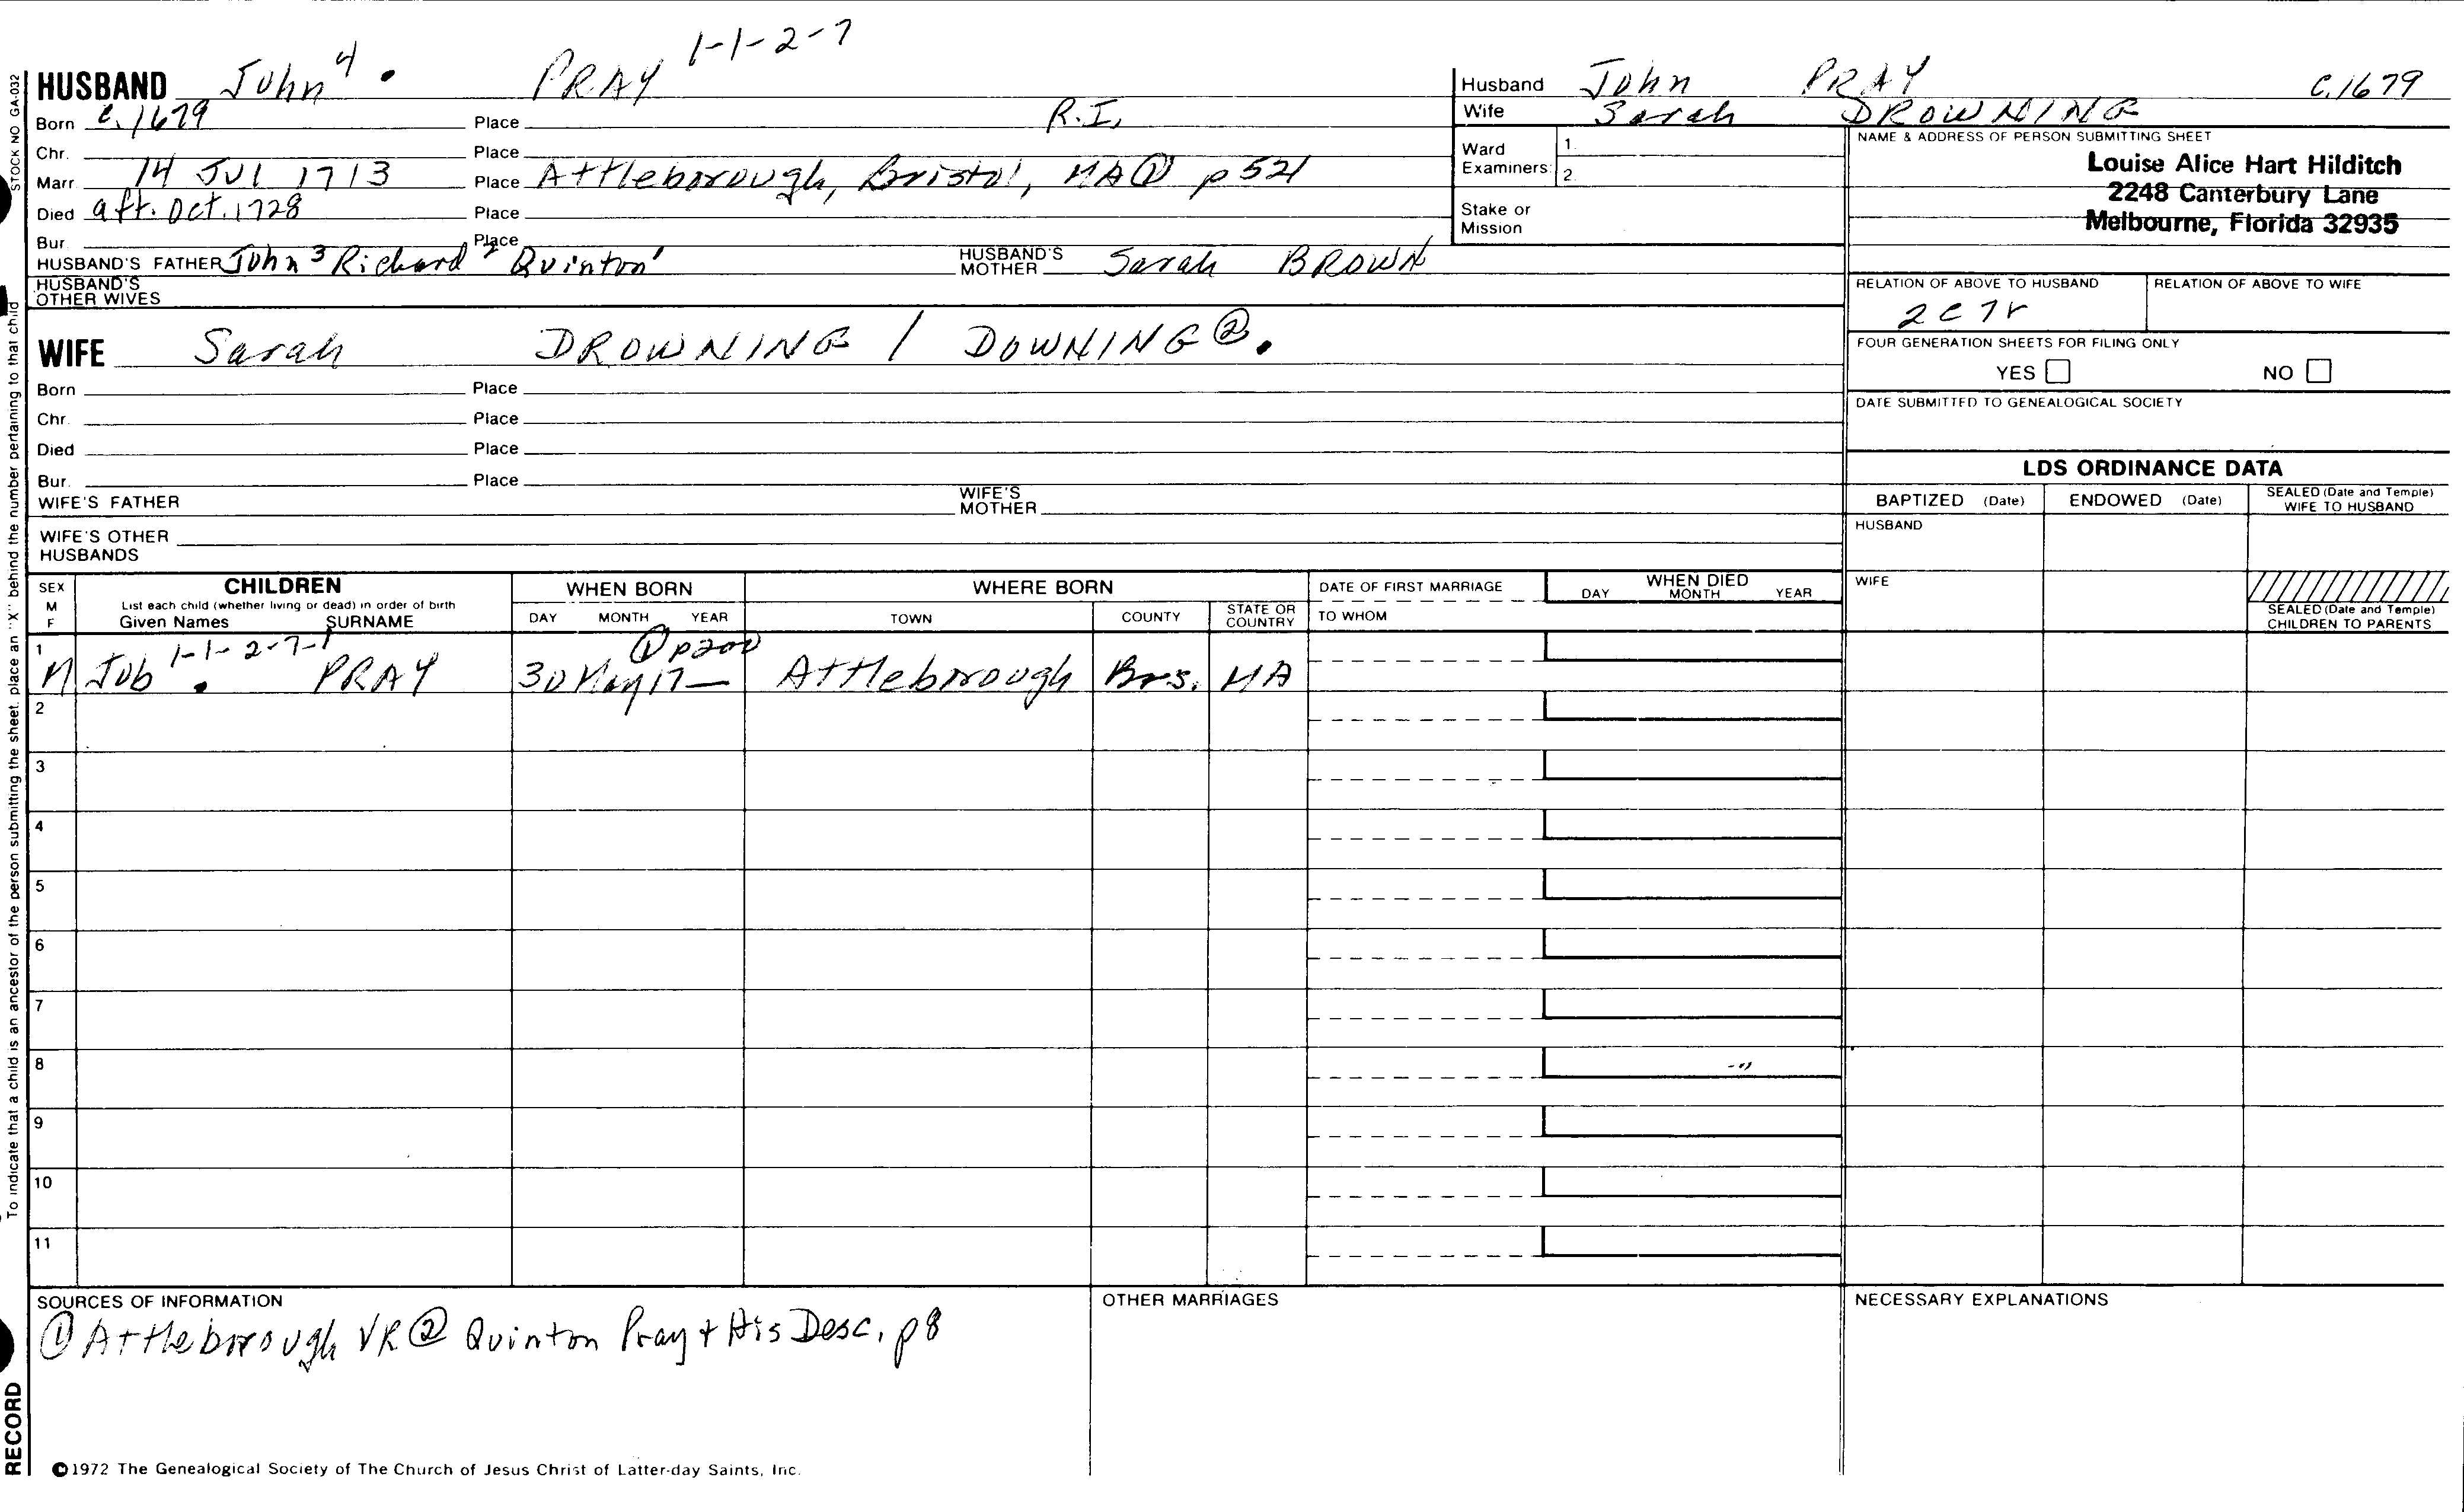 1-1-2-7
HUSBAND John 4 . PRAY
Born c. 1679 Place R.I.
Chr. Place
Marr. 14 JUL 1713 Place Attleborough, Bristol, MA ① p 521
Died aft. Oct. 1728 Place
Bur. Place
HUSBAND'S FATHER John 3 Richard 2 Quinton 1 HUSBAND'S MOTHER Sarah BROWN
HUSBAND'S OTHER WIVES
WIFE Sarah DROWNING / DOWNING ②.
Born Place
Chr. Place
Died Place
Bur. Place
WIFE'S FATHER WIFE'S MOTHER
WIFE'S OTHER HUSBANDS
Husband John PRAY c. 1679
Wife Sarah DROWNING
Ward Examiners: 1. 2.
Stake or Mission
NAME & ADDRESS OF PERSON SUBMITTING SHEET
Louise Alice Hart Hilditch
2248 Canterbury Lane
Melbourne, Florida 32935
RELATION OF ABOVE TO HUSBAND RELATION OF ABOVE TO WIFE
2C7r
FOUR GENERATION SHEETS FOR FILING ONLY
YES NO
DATE SUBMITTED TO GENEALOGICAL SOCIETY
LDS ORDINANCE DATA
BAPTIZED (Date) ENDOWED (Date) SEALED (Date and Temple) WIFE TO HUSBAND
HUSBAND
WIFE
SEALED (Date and Temple) CHILDREN TO PARENTS
SEX M F
CHILDREN
List each child (whether living or dead) in order of birth
Given Names SURNAME
WHEN BORN
DAY MONTH YEAR
WHERE BORN
TOWN COUNTY STATE OR COUNTRY
DATE OF FIRST MARRIAGE
TO WHOM
WHEN DIED
DAY MONTH YEAR
1 1-1-2-7-1 ① p200
M Job . PRAY 30 May 17— Attleborough Brs. MA
2
3
4
5
6
7
8
9
10
11
SOURCES OF INFORMATION
① Attleborough VR ② Quinton Pray + His Desc, p8
OTHER MARRIAGES
NECESSARY EXPLANATIONS
©1972 The Genealogical Society of The Church of Jesus Christ of Latter-day Saints, Inc.
STOCK NO GA-032
To indicate that a child is an ancestor of the person submitting the sheet, place an "X" behind the number pertaining to that child
RECORD